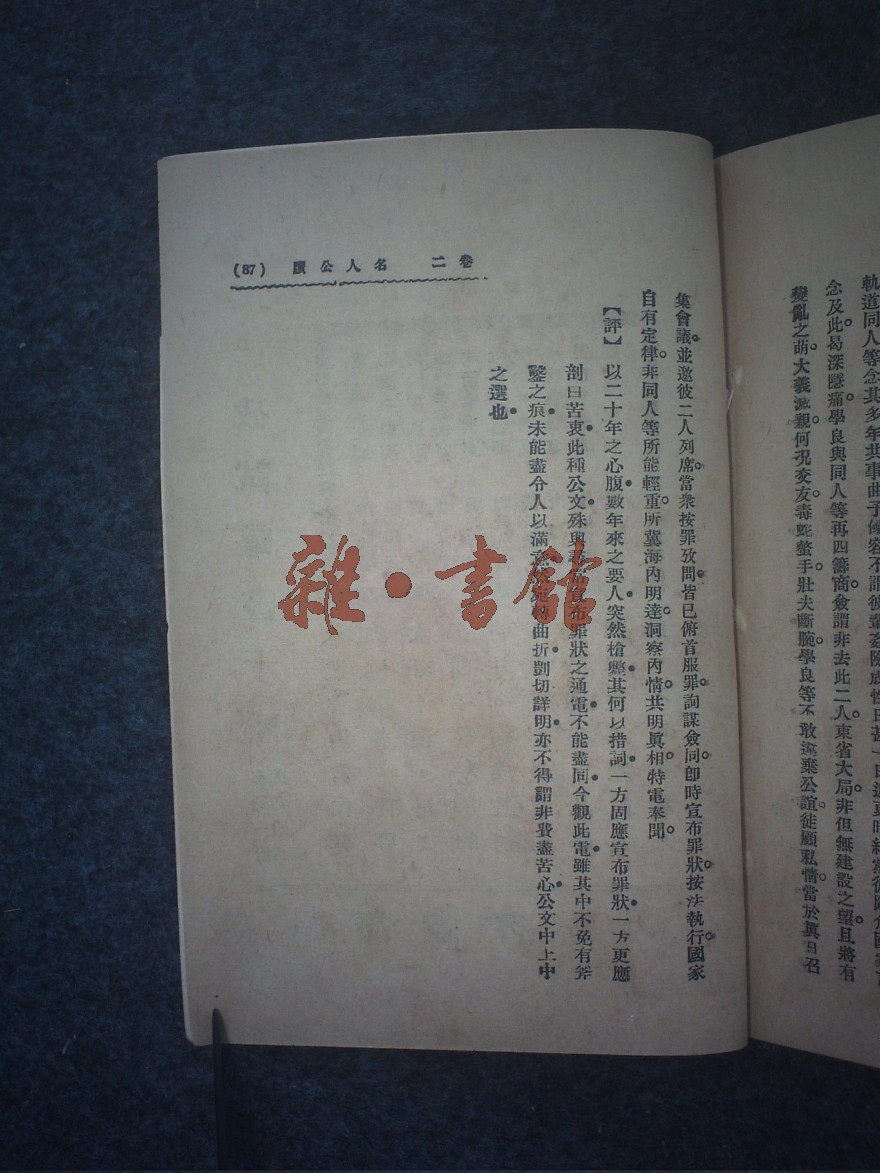 軌道同人等念其多年共事曲予優容不謂彼輩姦險成性日甚一日
念及此曷深隱痛。學良與同人等再四籌商。僉謂非去此二人。東省大局。非但無建設之望。且將有
變亂之萌。大義滅親。何況交友。毒蛇螫手。壯夫斷腕。學良等不敢違棄公誼。徒顧私情。當於眞日召
集會議。並邀彼二人列席。當衆按罪攷問。皆已俯首服罪。詢謀僉同。卽時宣布罪狀。按法執行。國家
自有定律。非同人等所能輕重。所冀海內明達。洞察內情。共明眞相。特電奉聞。
【評】 以二十年之心腹。數年來之要人。突然槍斃。其何以措詞。一方固應宣布罪狀。一方更應
剖白苦衷。此種公文。殊與宣布罪狀之通電。不能盡同。今觀此電。雖其中不免有斧
鑿之痕。未能盡令人以滿意。曲折剴切詳明。亦不得謂非費盡苦心。公文中上中
之選也。
卷二 名人公牘 (87)
雜·書館